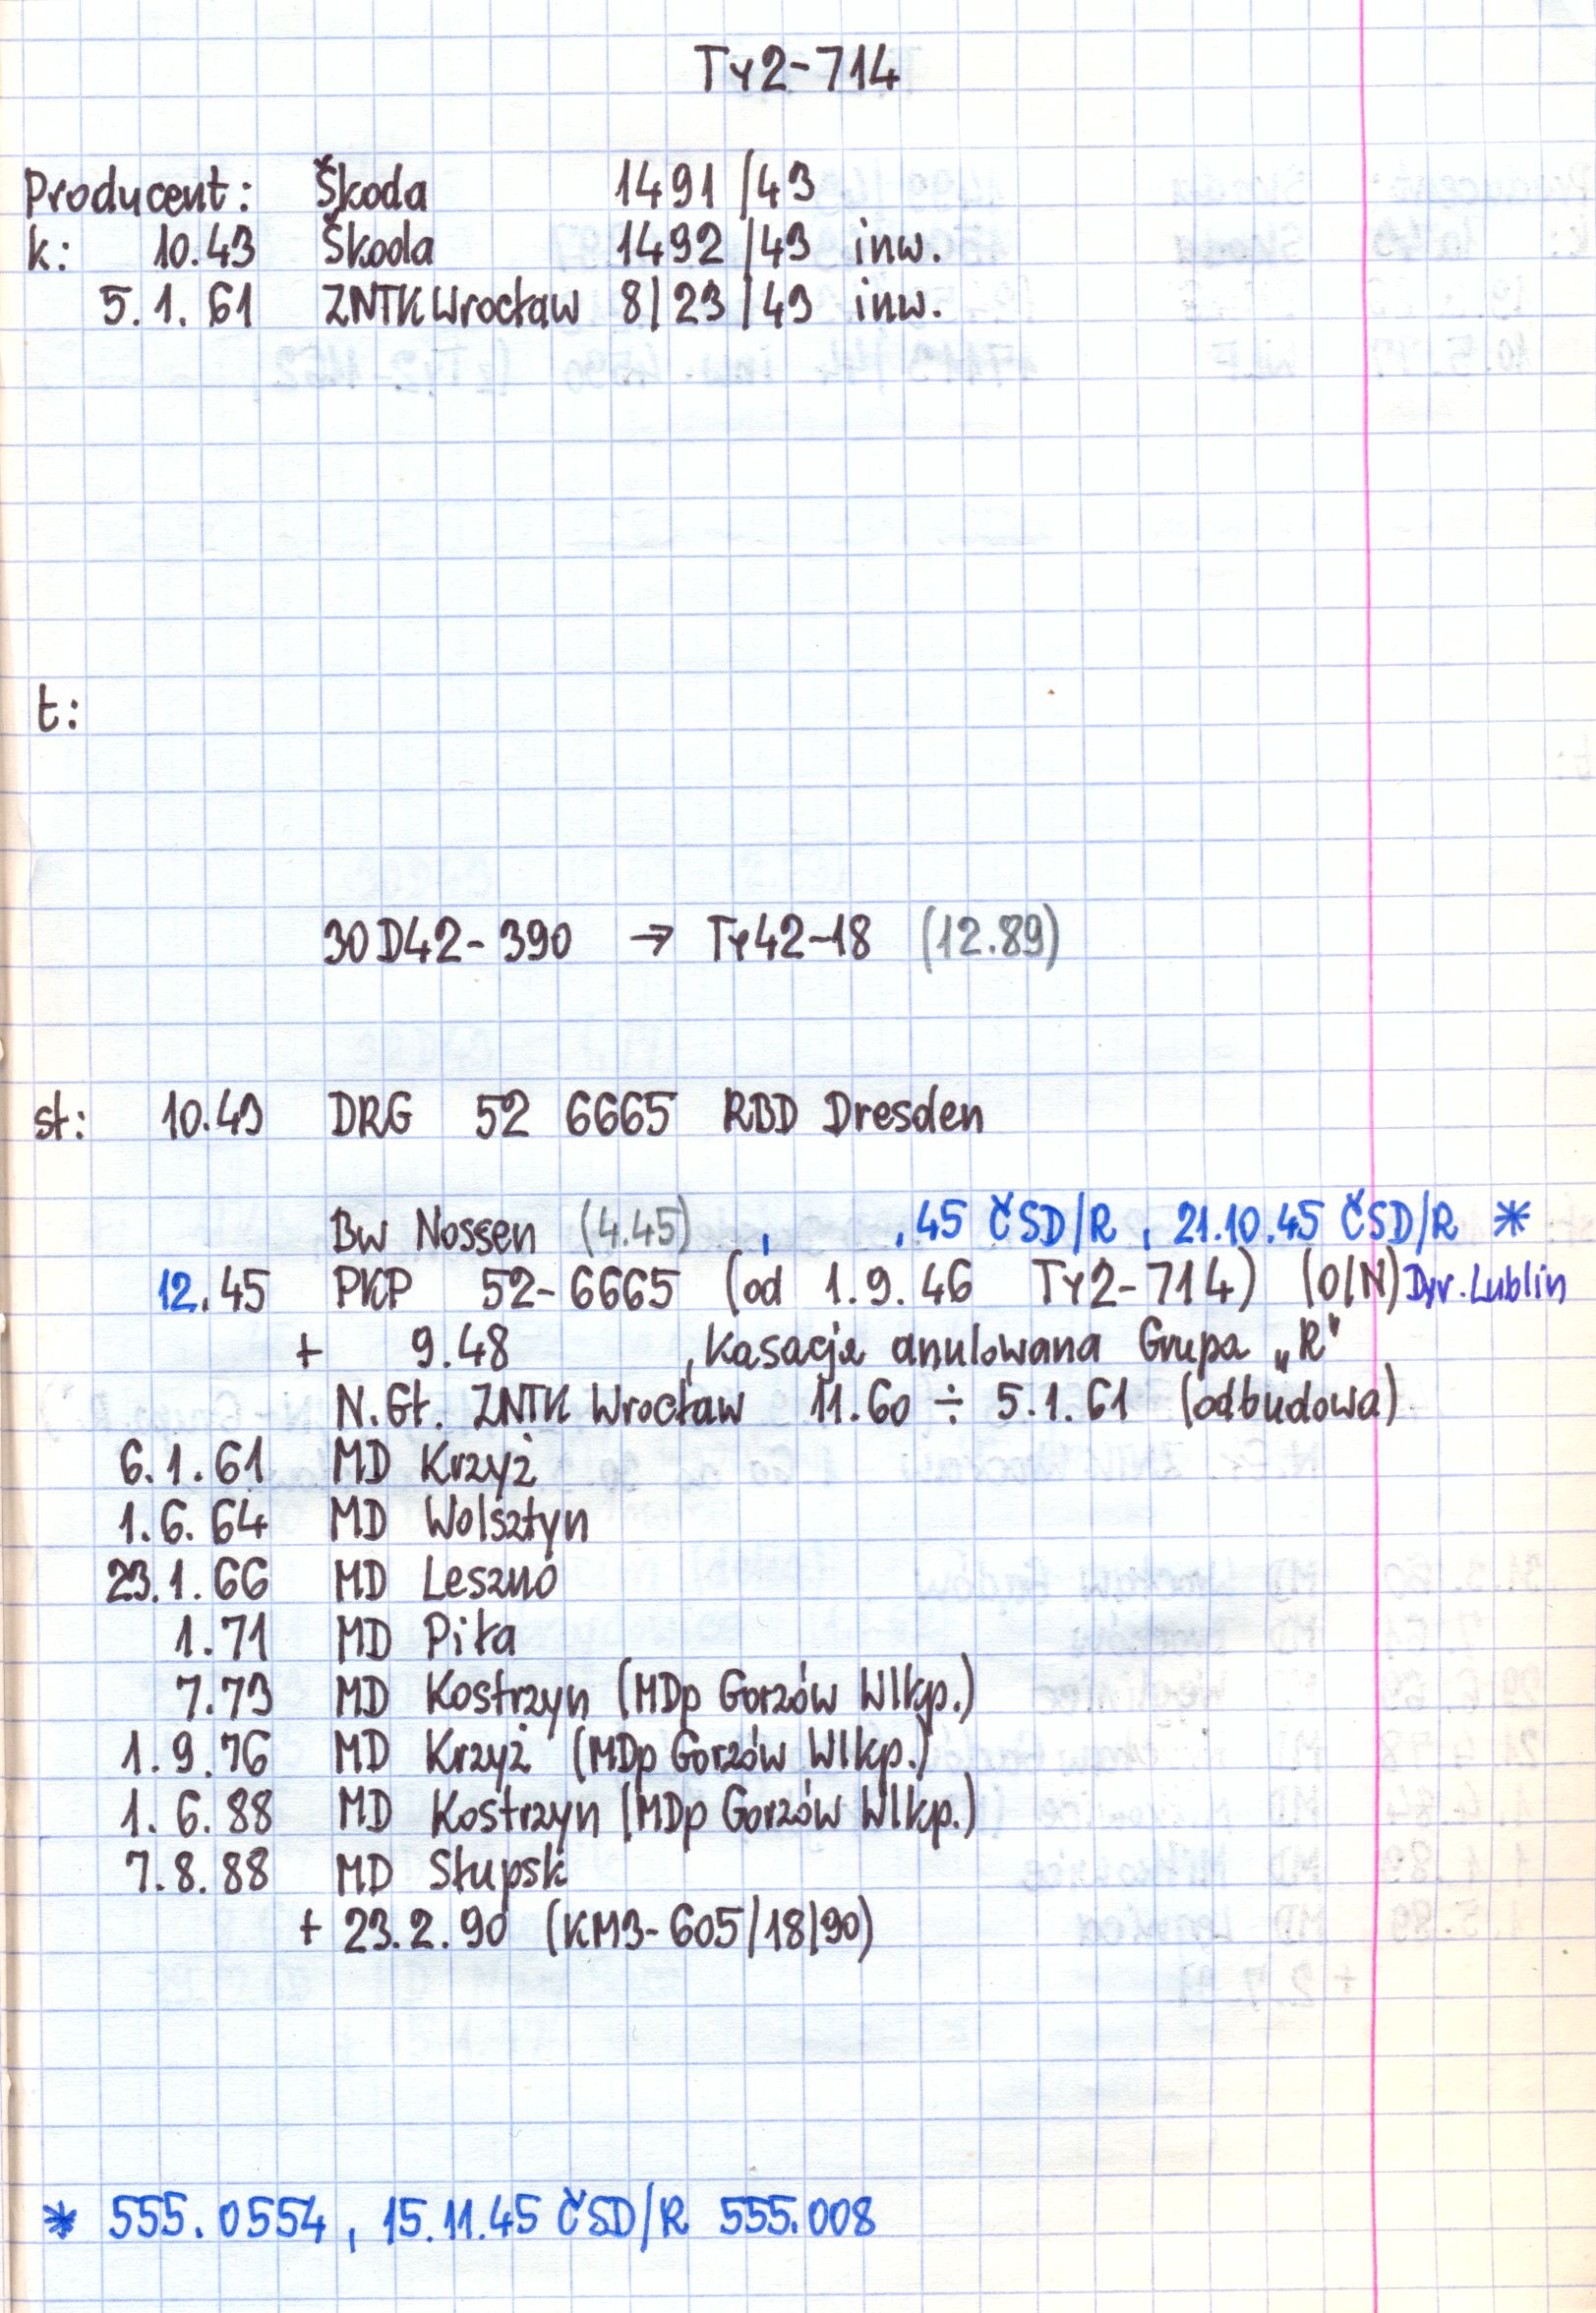 Ty2-714
Producent: Škoda 1491/43
k: 10.43 Škoda 1492/43 inw.
5.1.61 ZNTK Wrocław 8/23/43 inw.
t:
30D42-390 → Ty42-18 (12.89)
st: 10.43 DRG 52 6665 RBD Dresden
Bw Nossen (4.45) , .45 ČSD/R , 21.10.45 ČSD/R *
12.45 PKP 52-6665 (od 1.9.46 Ty2-714) (O/N) Dyr. Lublin
+ 9.48 , kasacja anulowana Grupa „R"
N.Gł. ZNTK Wrocław 11.60 ÷ 5.1.61 (odbudowa)
6.1.61 MD Krzyż
1.6.64 MD Wolsztyn
23.1.66 MD Leszno
1.71 MD Piła
7.73 MD Kostrzyn (MDp Gorzów Wlkp.)
1.9.76 MD Krzyż (MDp Gorzów Wlkp.)
1.6.88 MD Kostrzyn (MDp Gorzów Wlkp.)
7.8.88 MD Słupsk
+ 23.2.90 (KM3-605/18/90)
* 555.0554, 15.11.45 ČSD/R 555.008